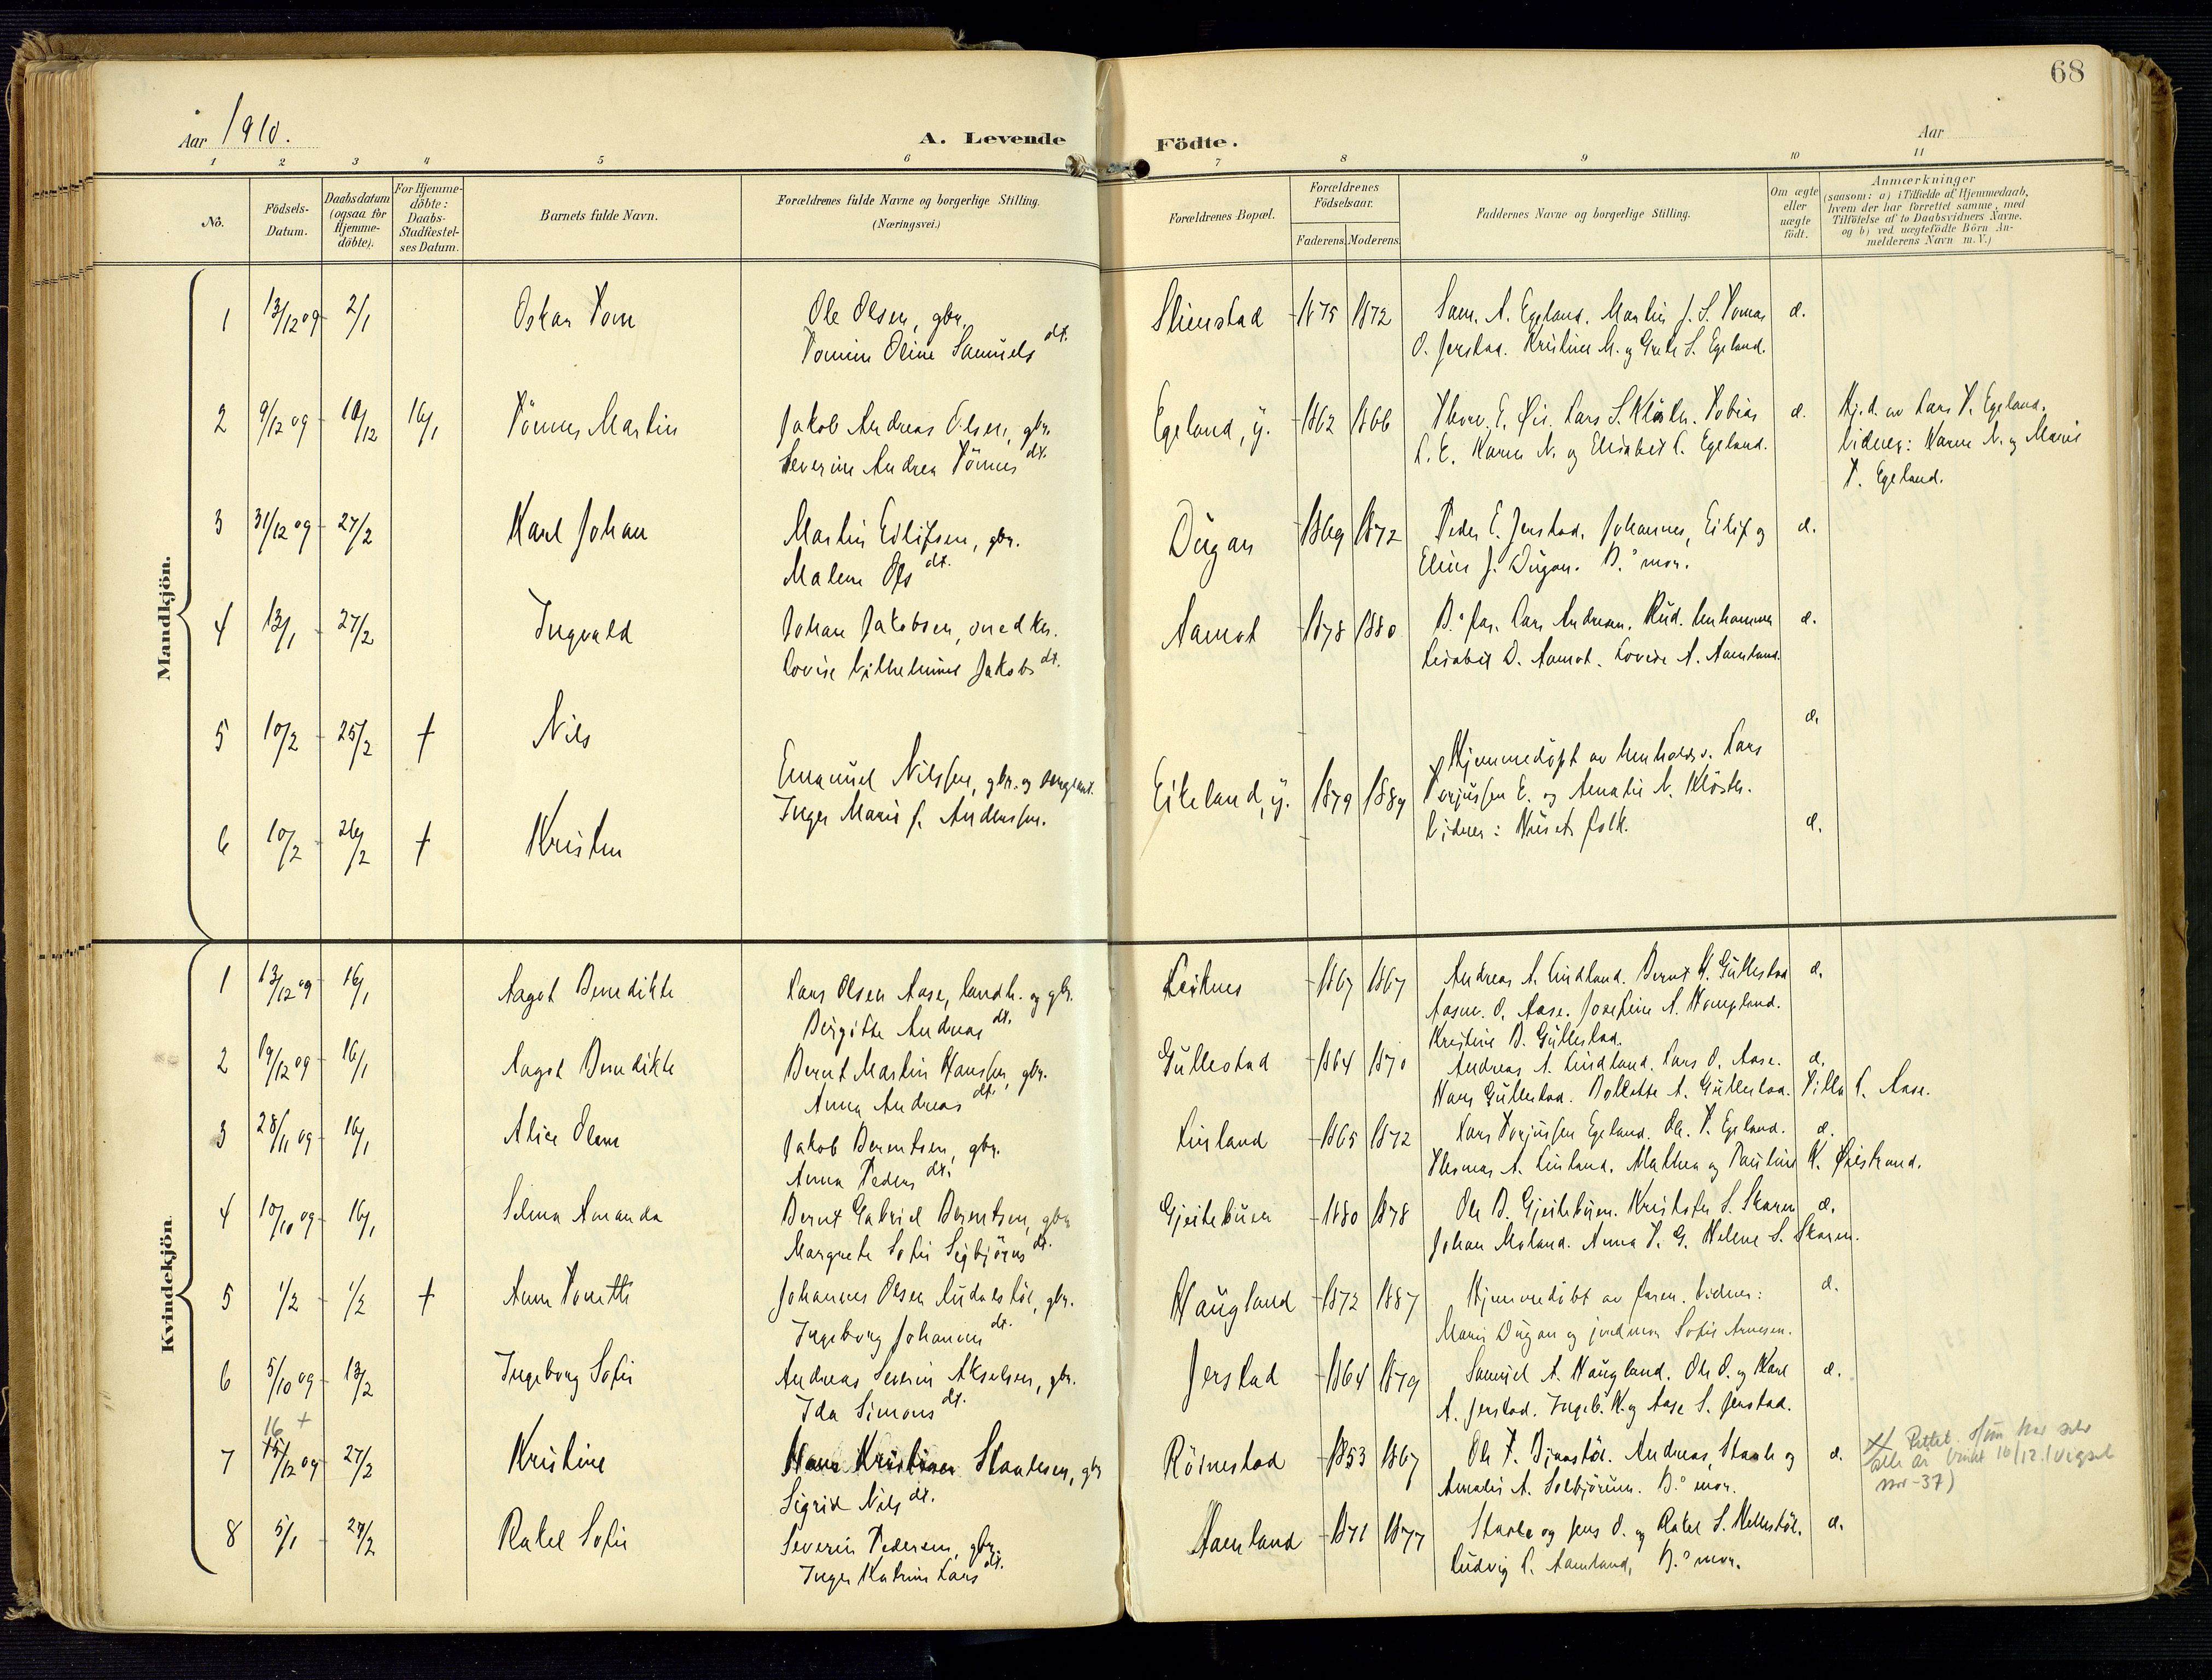 68
Aar 1910.
A. Levende Födte.
Aar
1 2 3 4 5 6 7 8 9 10 11
No.
Födsels-Datum.
Daabsdatum (ogsaa for Hjemme-döbte).
For Hjemme-döbte: Daabs-Stadfæstel-ses Datum.
Barnets fulde Navn.
Forældrenes fulde Navne og borgerlige Stilling. (Næringsvei.)
Forældrenes Bopæl.
Forældrenes Födselsaar.
Faderens. Moderens.
Faddernes Navne og borgerlige Stilling.
Om ægte eller uægte födt.
Anmærkninger
(saasom: a) i Tilfælde af Hjemmedaab,
hvem der har forrettet samme, med
Tilföielse af to Daabsvidners Navne.
og b) ved uægtefödte Börn An-
melderens Navn m. V.)
Mandkjön.
1 13/12 09 2/1 Oskar Tom Ole Olsen, gbr. 1875 1872 Sam. A. Egeland. Martin J. S. Tomas æ.
Tomine Oline Samuels dt. O. Jerstad. Kristine M. og Grete S. Egeland.
2 9/12 09 10/12 16/1 Tönnes Martin Jakob Andreas Olsen, gbr. Egeland, y. 1862 1866 Lars S. Klöster. Tobias æ. Hj.d. av Lars T. Egeland.
Severine Andrea Tönnes dt. Karen N. og Elisabet L. Egeland. Vidner: Karen N. og Marie
T. Egeland.
3 31/12 09 27/2 Karl Johan Martin Eilifsen, gbr. Dugan 1869 1872 Peder E. Jerstad. Johannes, Eilif og æ.
Malene Ols dt. Eline J. Dugan. B.s mor.
4 13/1 27/2 Ingvald Johan Jakobsen, snedkr. Aamot 1878 1880 B.s far. Lars Andreas. æ.
Lovise Vilhelmine Jakobs dt. Lisabet D. Aamot. Lovise A. Aamland.
5 10/2 25/2 + Nils æ.
Emanuel Nilssen, gbr. og Eikeland, y. 1879 1889 Hjemmedöpt av henholdsv. Lars
Inger Marie J. Anderssen. Torjussen E. og Amalie N. Klöster.
6 10/2 26/2 + Kristen Vidner: Husets folk. æ.
Kvindekjön.
1 13/12 09 16/1 Aagot Benedikte Lars Olsen Aase, landh. og gbr. Leiknes 1867 1867 Andreas A. Lindland. Bernt H. Gullestad æ.
Bergitte Andreas dt. Aasm. O. Aase. Josefine A. Haugland.
Kristine B. Gullestad.
2 19/12 09 16/1 Aagot Benedikte Bernt Martin Hanssen, gbr. Gullestad 1864 1870 Andreas A. Lindland. Lars O. Aase. æ.
Anna Andreas dt. Hans Gullestad. Bollette A. Gullestad. Tilla L. Aase.
3 28/11 09 16/1 Alice Olene Jakob Berentsen, gbr. Linland 1865 1872 Lars Torjussen Egeland. Ole T. Egeland. æ.
Anna Peders dt. Thomas A. Linland. Mathea og Pauline K. Öiestrand.
4 10/10 09 16/1 Selma Amanda Bernt Gabriel Berntsen, gbr. Gjeitebuen 1880 1878 Ole B. Gjeitebuen. Kristofer S. Skaren æ.
Margrete Sofie Sigbjörns dt. Johan Moland. Anna T. G. Helene S. Skaren.
5 1/2 1/2 + Anne Tonette Johannes Olsen, gbr. Haugland 1872 1887 Hjemmedöbt av faren. Vidner: æ.
Ingeborg Johannes dt. Marie Dugan og jordmor Sofie Arnesen.
6 5/10 09 13/2 Ingeborg Sofie Andreas Severin Akselsen, gbr. Jerstad 1864 1879 Samuel A. Haugland. Ole O. og Karl æ.
Ida Simons dt. A. Jerstad. Ingeb. K. og Aase S. Jerstad.
16 +
7 15/12 09 27/2 Kristine Hans Kristian Staalesen, gbr Röinestad 1853 1867 Ole T. Andreas, Staale og æ. x/ Rettet.
Sigrid Nils dt. Amalie A. Solbjörnen. B.s mor. 16/12. (vigsel
nr-37)
8 5/1 27/2 Rakel Sofie Severin Pedersen, gbr. Aamland 1871 1877 Staale og Jens O. og Rakel S. Hellestöl. æ.
Inger Katrine Lars dt. Ludvig L. Aamland, B.s mor.